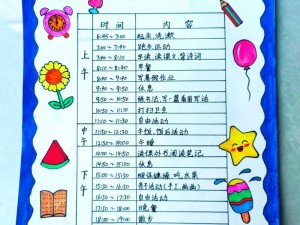 时间 内容
上午
6:45~7:00 起床、洗漱
7:00~7:40 跑步、运动
7:40~8:10 早读、读课文、背诗词
8:10~8:40 早餐
8:40~9:40 写寒假作业
9:40~10:00 休息
10:00~10:50 练书法、写一篇看图写话
10:50~11:10 打扫卫生
11:10~11:30 自由活动
中午
11:30~12:30 午饭、饭后活动
12:30~14:00 午睡
14:00~14:50 读课外书、阅读笔记
下午
14:50~15:00 休息
15:00~15:30 眼保健操、吃水果
15:30~16:30 手工(画画)
16:30~17:20 自由活动
17:20~18:00 晚餐
18:00~19:00 散步